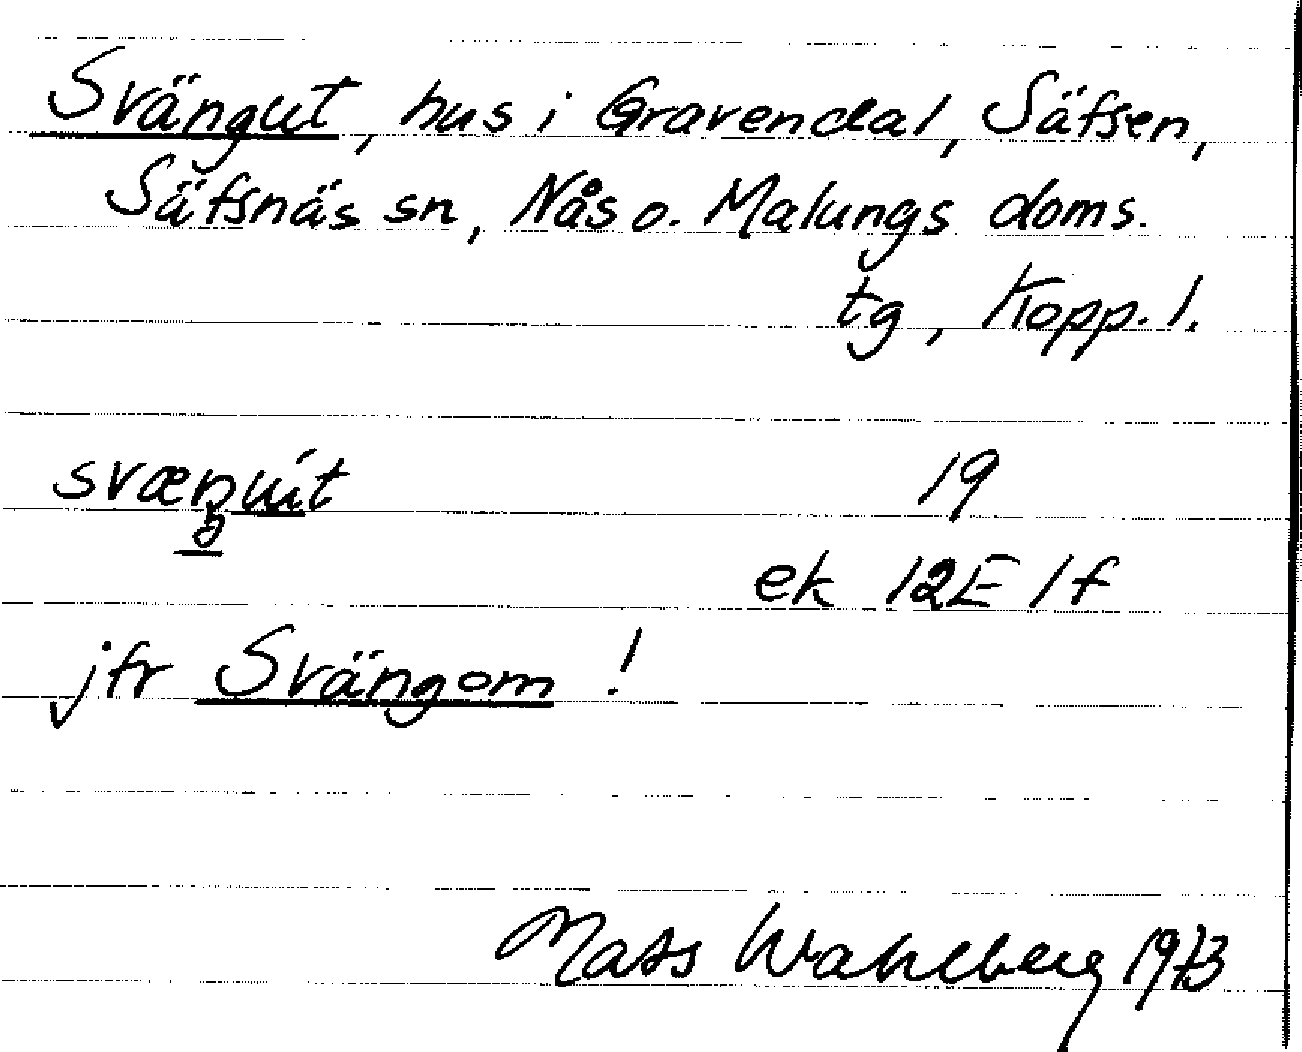 Svängut, hus i Gravendal, Säfsen,
Säfsnäs sn, Nås o. Malungs doms.
tg, Kopp. l.
19
ek 12E 1f
jfr Svängom!
Mats Wahlberg 1973